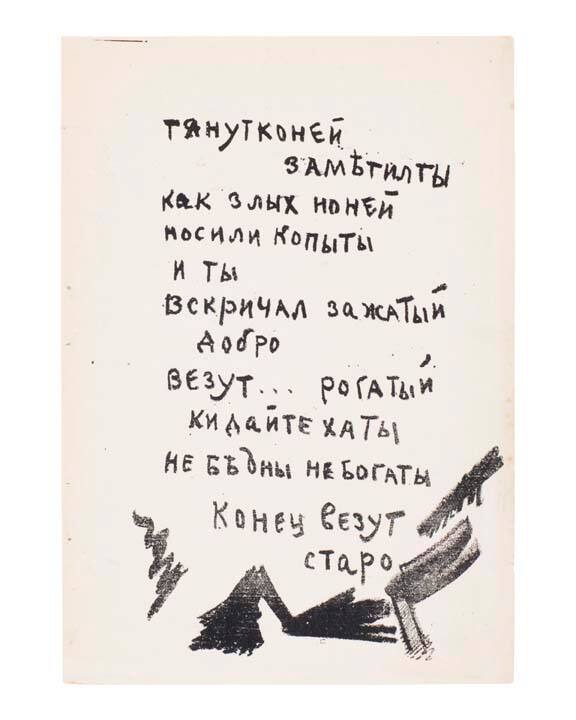 тянутконей
замѣтилты
как злых ноней
носили копыты
и ты
вскричал зажатый
добро
везут... рогатый
кидайте хаты
не бѣдны небогаты
конец везут
старо